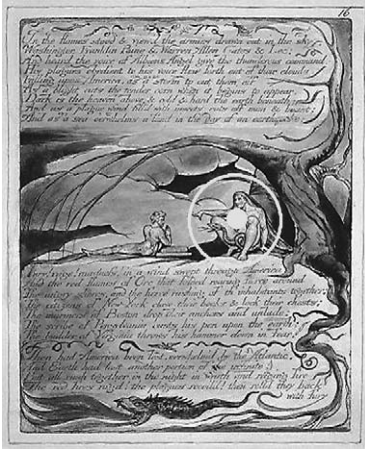 16
In the flames stood & view'd the armies drawn out in the sky
Washington Franklin Paine & Warren Allen Gates & Lee:
And heard the voice of Albions Angel give the thunderous command:
His plagues obedient to his voice flew forth out of their clouds
Falling upon America, as a storm to cut them off
As a blight cuts the tender corn when it begins to appear.
Dark is the heaven above, & cold & hard the earth beneath;
And as a plague wind fill'd with insects cuts off man & beast;
And as a sea o'erwhelms a land in the day of an earthquake:
Fury! rage! madness! in a wind swept through America
And the red flames of Orc that folded roaring fierce around
The angry shores, and the fierce rushing of th'inhabitants together:
The citizens of New-York close their books & lock their chests;
The mariners of Boston drop their anchors and unlade;
The scribe of Pensylvania casts his pen upon the earth;
The builder of Virginia throws his hammer down in fear.
Then had America been lost, o'erwhelm'd by the Atlantic,
And Earth had lost another portion of the infinite,
But all rush together in the night in wrath and raging fire
The red fires rag'd! the plagues recoil'd! then rolld they back
with fury